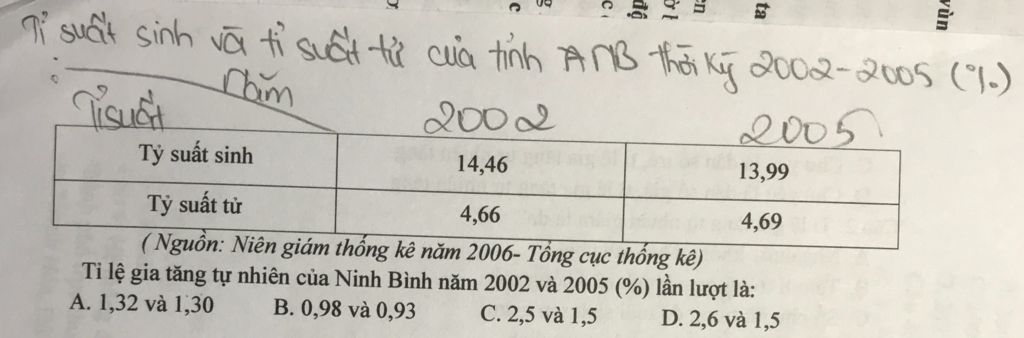 Tỉ suất sinh và tỉ suất tử của tỉnh ANB thời kỳ 2002-2005 (%)
Năm
Tỉ suất 2002 2005
Tỷ suất sinh 14,46 13,99
Tỷ suất tử 4,66 4,69
( Nguồn: Niên giám thống kê năm 2006- Tổng cục thống kê)
Tỉ lệ gia tăng tự nhiên của Ninh Bình năm 2002 và 2005 (%) lần lượt là:
A. 1,32 và 1,30 B. 0,98 và 0,93 C. 2,5 và 1,5 D. 2,6 và 1,5
ta
vùn